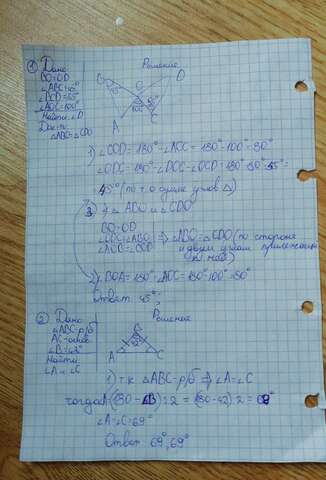 ① Дано
BO=OD
∠ABC=45°
∠BCD=55°
∠AOC=100°
Найти: ∠D
Док-ть:
∠ABO=∠CDO
Решение
B
O
D
45°
55°
100°
A
C
1) ∠COD=180°-∠AOC=180°-100°=80°
∠ODC=180°-∠DOC-∠OCD=180°-80°-55°=
=45° (по т. о сумме углов △)
3) у △ABO и △CDO
BO=OD
⇒ △ABO=△CDO (по стороне
и двум углам
к ней)
2) ∠BOA=180°-∠AOC=180°-100°=80°
Ответ: 45°
② Дано
△ABC-р/б
AC-основ
∠B=42°
Найти
∠A и ∠C
Решение
B
42°
A
C
1) т.к △ABC-р/б ⇒ ∠A=∠C
тогда (180-42):2=(180-42):2=69°
∠A=∠C=69°
Ответ: 69°, 69°